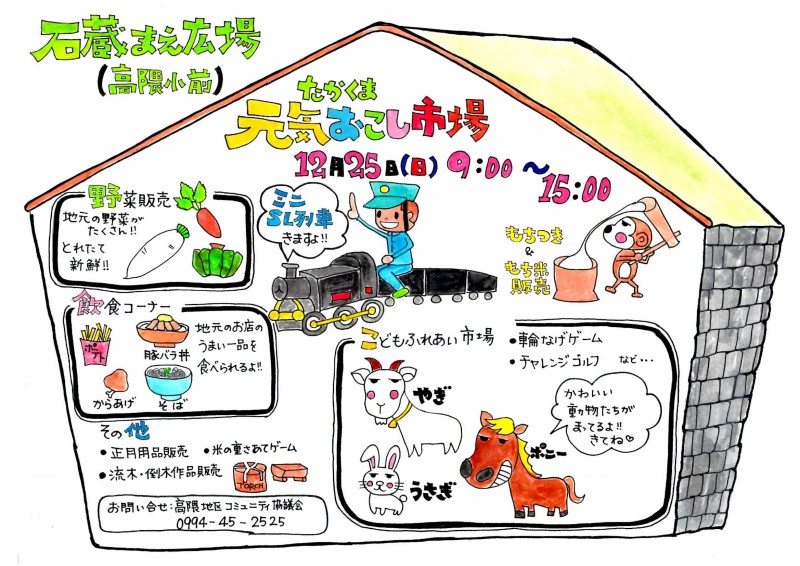 石蔵まえ広場
(高隈小前)
たかくま
元気おこし市場
12月25日(日) 9:00〜
15:00
野菜販売
地元の野菜が
たくさん!!
とれたて
新鮮!!
ミニ
SL列車
きますよ!!
もちつき
&
もち米
販売
飲食コーナー
ポテト
豚バラ丼
からあげ
そば
地元のお店の
うまい一品を
食べられるよ!!
こどもふれあい市場
•輪なげゲーム
•チャレンジゴルフ など…
やぎ
うさぎ
ポニー
かわいい
動物たちが
まってるよ!!
きてね♡
その他
•正月用品販売 •米の重さあてゲーム
•流木・倒木作品販売
TORCH
お問い合せ:高隈地区コミュニティ協議会
0994-45-2525